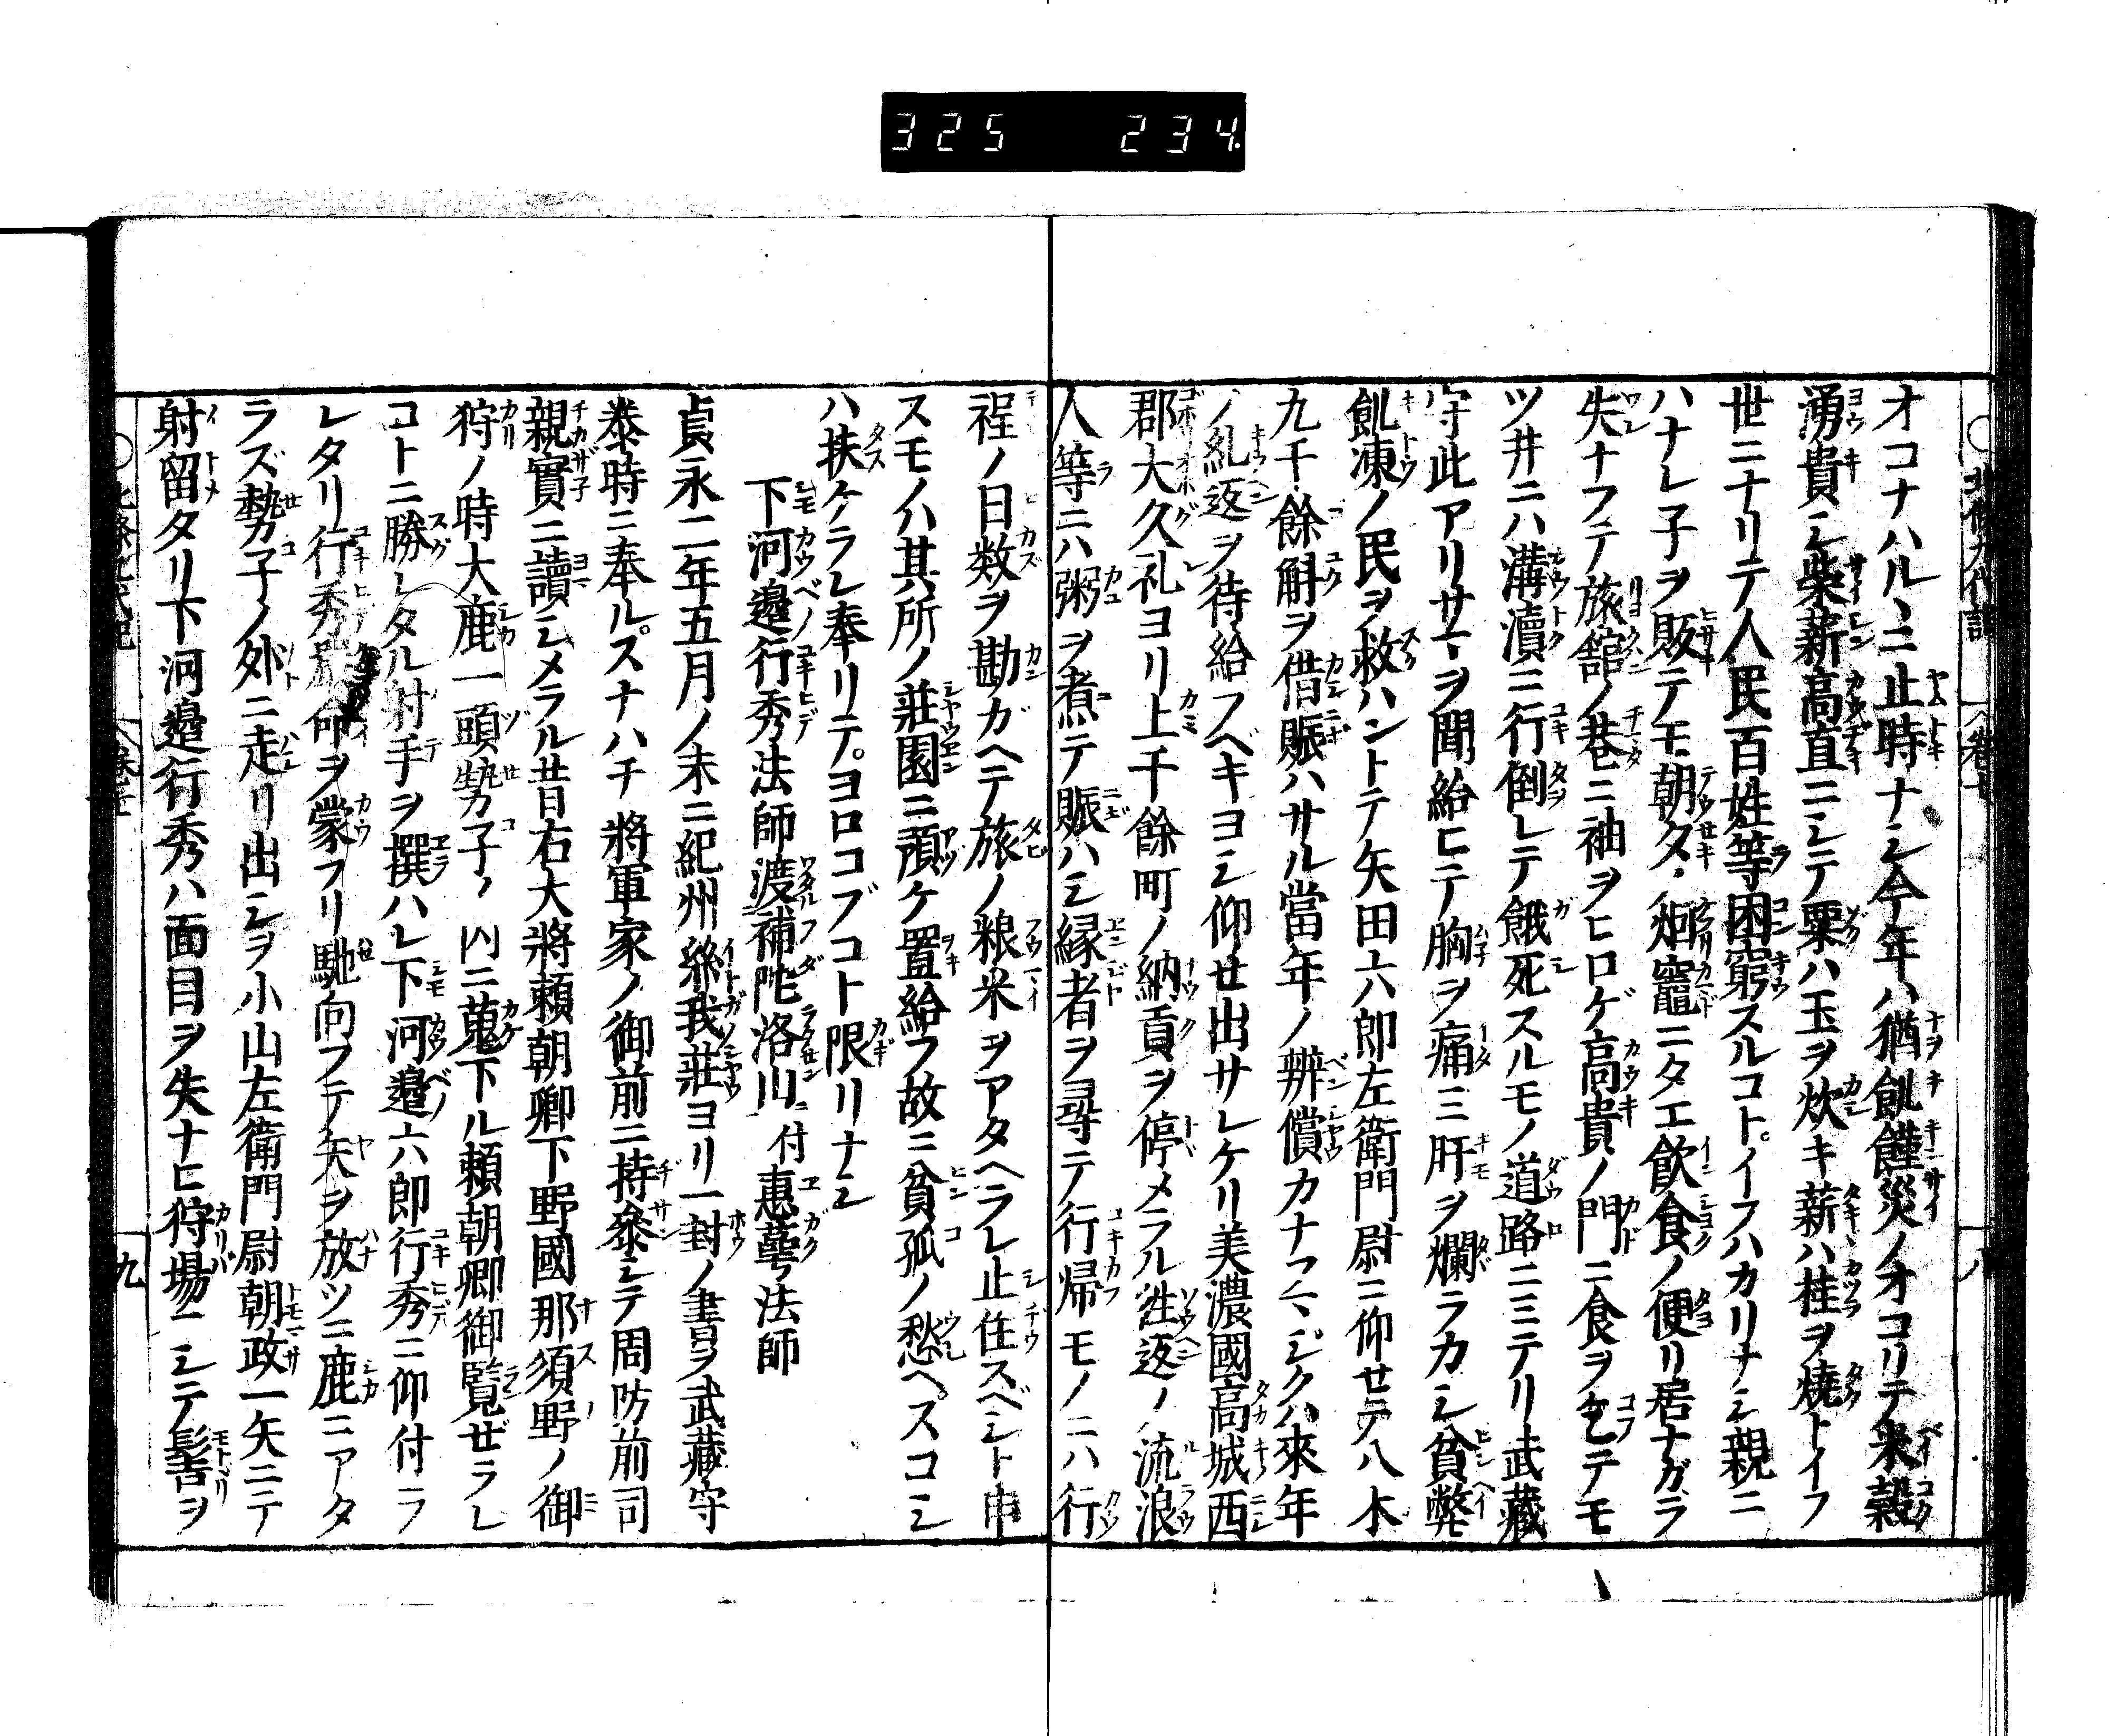 325 234.
オコナハルヽニ止時ナシ今年ハ猶飢饉災ノオコリテ米穀
湧貴シ柴薪高直ニシテ粟ハ玉ヲ炊キ薪ハ桂ヲ焼トイフ
世ニナリテ人民百姓等困窮スルコトイフハカリナシ親ニ
ハナレ子ヲ販テモ朝タノ烟竈ニタエ飲食ノ便リ居ナガラ
失ナフテ旅館ノ巷ニ袖ヲヒロゲ高貴ノ門ニ食ヲ乞テモ
ツ井ニハ溝瀆ニ行倒レテ餓死スルモノ道路ニミテリ武藏
守此アリサマヲ聞給ヒテ胸ヲ痛ミ肝ヲ爛ラカシ貧弊
飢凍ノ民ヲ救ハントテ矢田六郎左衛門尉ニ仰セテ八木
九千餘斛ヲ借賑ハサル當年ノ辨償カナフマジクハ來年
ノ糺返ヲ待給フベキヨシ仰せ出サレケリ美濃國高城西
郡大久礼ヨリ上千餘町ノ納貢ヲ停メラル徃返ノ流浪
人等ニハ粥ヲ煮テ賑ハシ縁者ヲ尋テ行帰モノニハ行
程ノ日数ヲ勘ガヘテ旅ノ粮米ヲアタヘラレ止住スベシト申
スモノハ其所ノ莊園ニ預ケ置給フ故ニ貧孤ノ愁ヘスコシ
ハ扶ケラレ奉リテヨロコブコト限リナシ
下河邉行秀法師渡補陀洛山 付 惠蕚法師
貞永二年五月ノ末ニ紀州絲我莊ヨリ一封ノ書ヲ武藏守
泰時ニ奉ルスナハチ將軍家ノ御前ニ持參シテ周防前司
親實ニ讀シメラル昔右大將頼朝卿下野國那須野ノ御
狩ノ時大鹿一頭勢子ノ内ニ蒐下ル頼朝卿御覧ぜラレ
コトニ勝レタル射手ヲ撰ハレ下河邉六郎行秀ニ仰付ラ
レタリ行秀嚴命ヲ蒙フリ馳向フテ矢ヲ放ツニ鹿ニアタ
ラズ勢子ノ外ニ走リ出シヲ小山左衛門尉朝政一矢ニテ
射留タリ下河邉行秀ハ面目ヲ失ナヒ狩場ニシテ髻ヲ
九